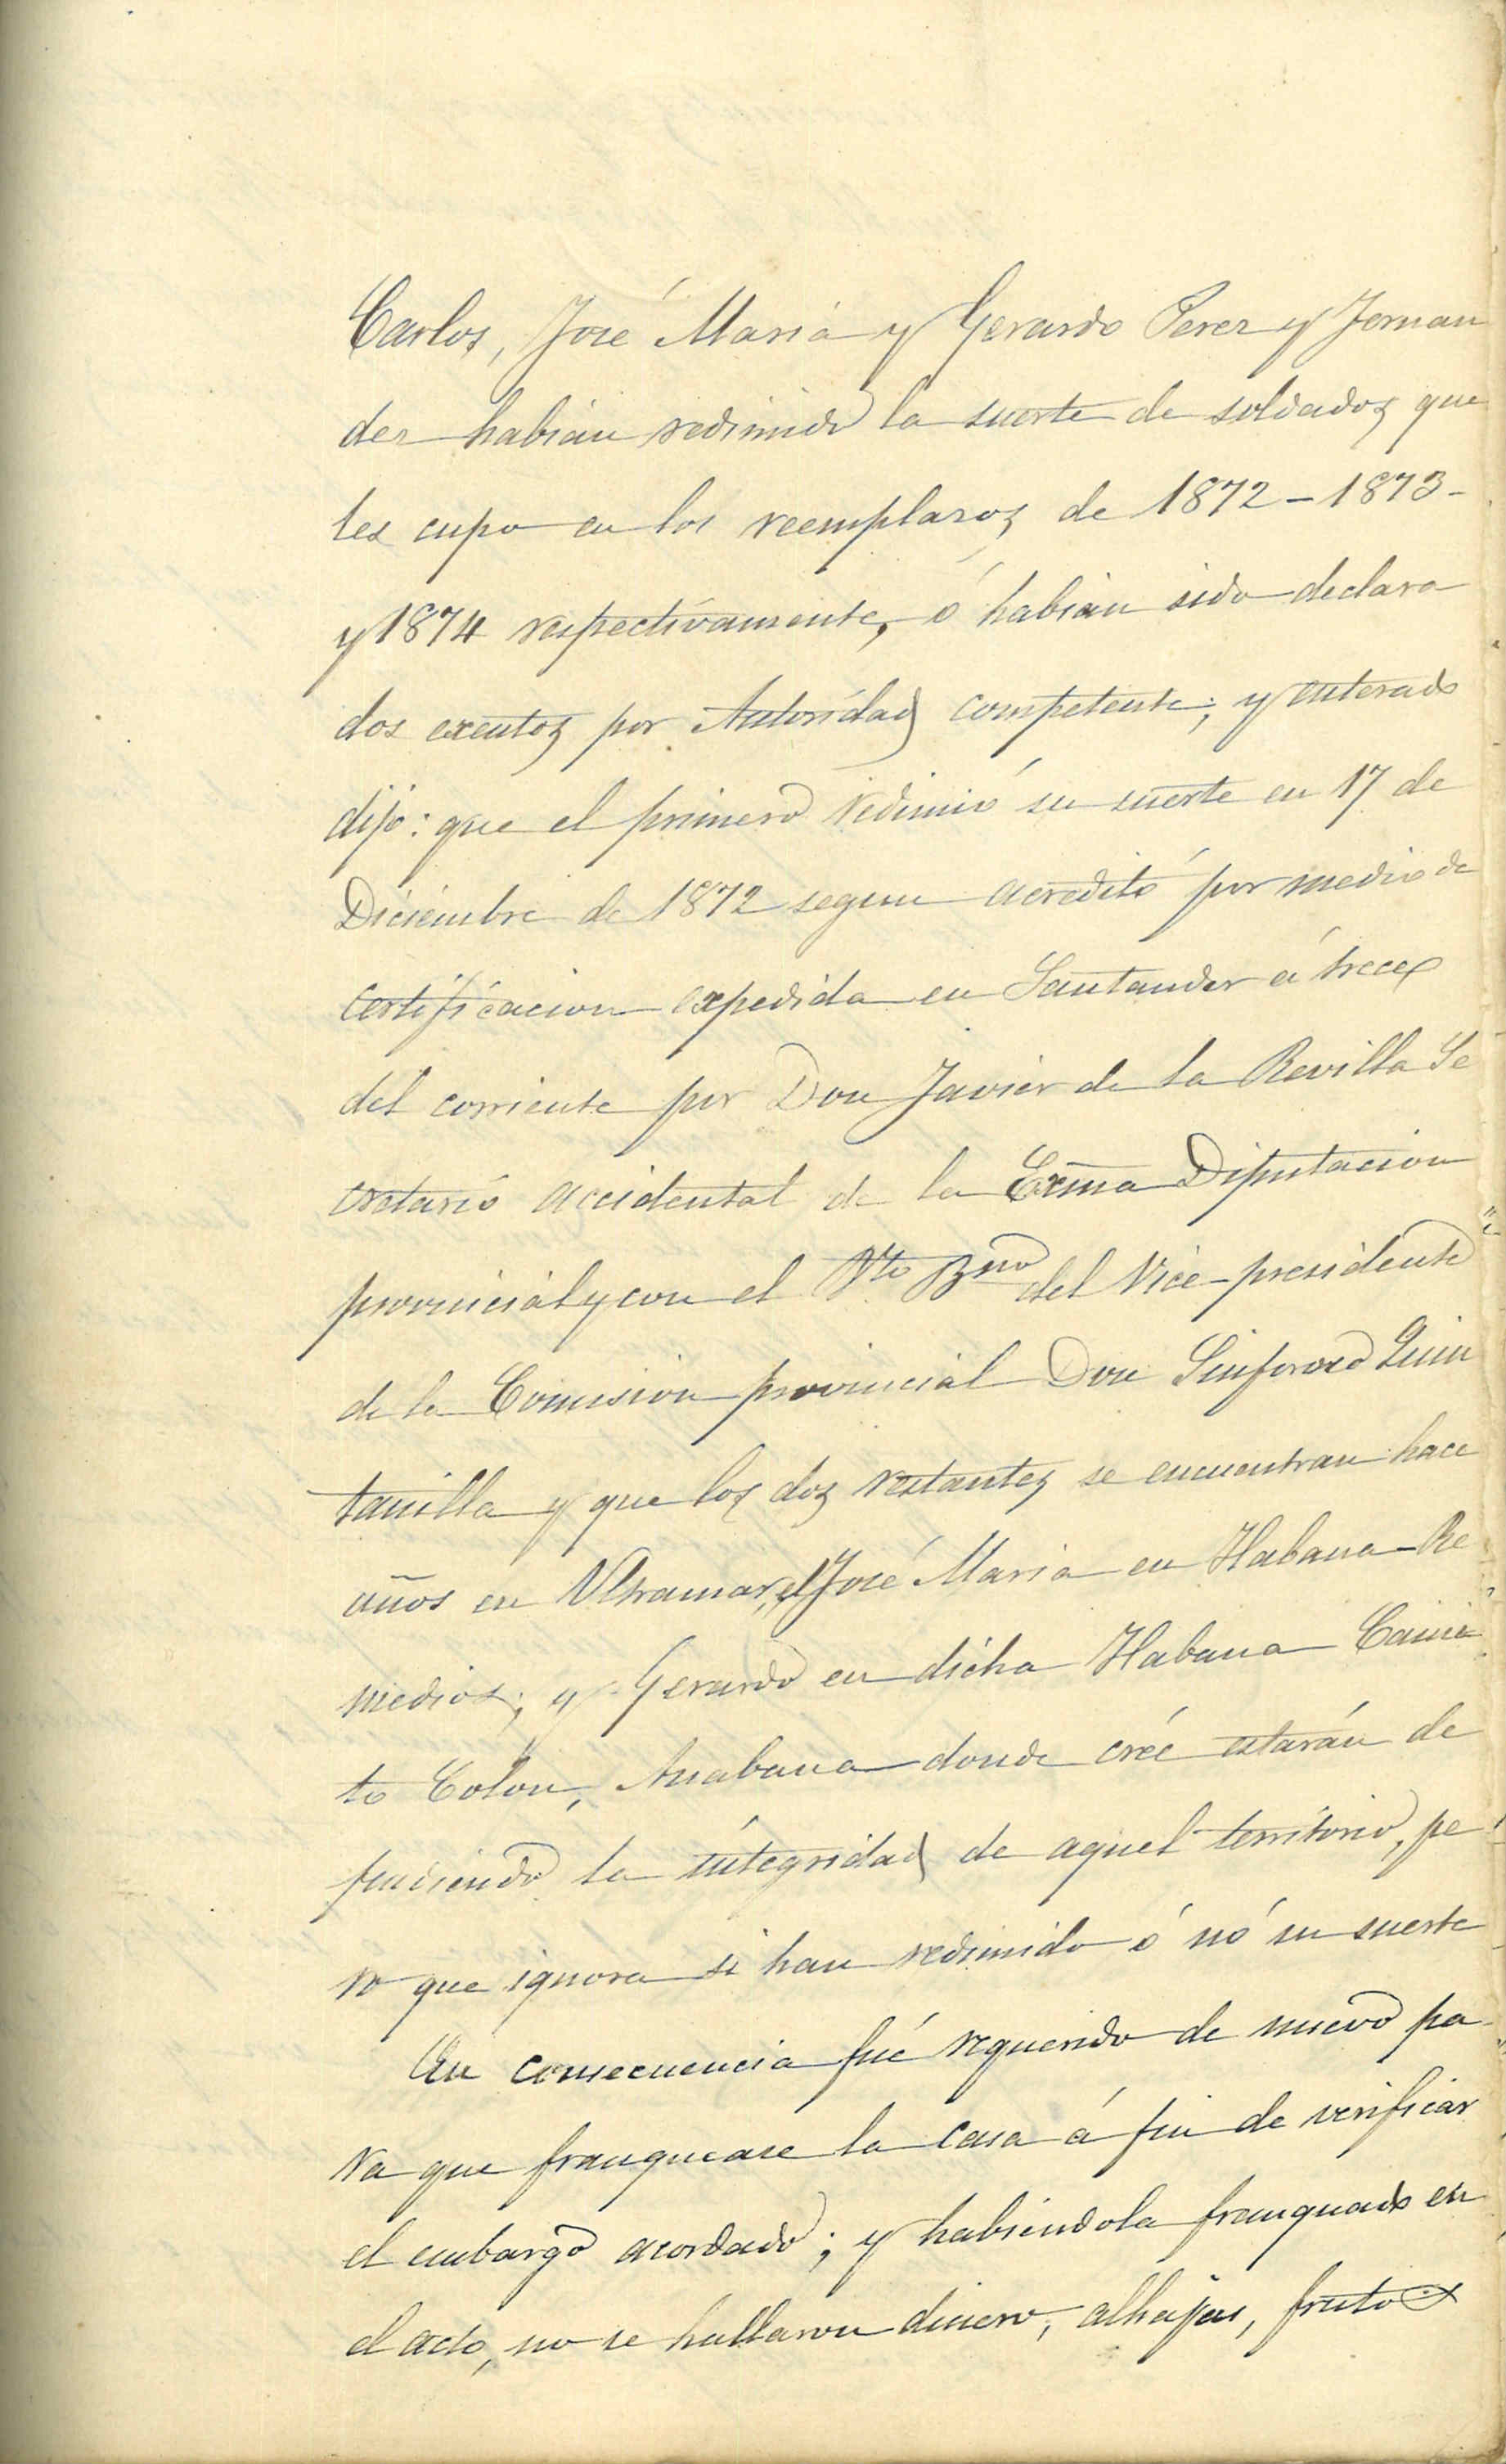 Carlos, José Maria y Gerardo Perez y Fernan
dez habian redimido la suerte de soldados que
les cupo en los reemplazos de 1872 - 1873 -
y 1874 respectivamente, ó habian sido declara
dos exentos por Autoridad competente; y enterado
dijo: que el primero redimió su suerte en 17 de
Diciembre de 1872 segun acreditó por medio de
certificacion expedida en Santander á trece
del corriente por Don Javier de la Revilla Se
cretario accidental de la Exma Diputacion
provincial y con el Vto Bno del Vice-presidente
de la Comision provincial Don Sinforoso Quin
tanilla y que los dos restantes se encuentran hace
años en Ultramar, el José Maria en Habana - Re
medios; y Gerardo en dicha Habana
to Colon, donde créé estarán de
fendiendo la integridad de aquel territorio, pe
ro que ignora si han redimido ó nó su suerte
En consecuencia fué requerido de nuevo pa
ra que franquease la casa á fin de verificar
el embargo acordado; y habiendola franqueado en
el acto, no se hallaron dinero, alhajas, frutos